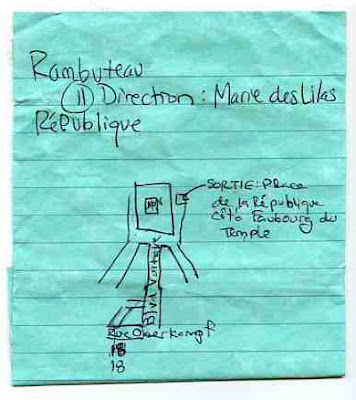 Rambuteau
⑪ Direction: Marie des Lilas
République
SORTIE: Place
de la République
côté Faubourg du
Temple
Blvd Voltaire
Rue Oberkampf
18
18